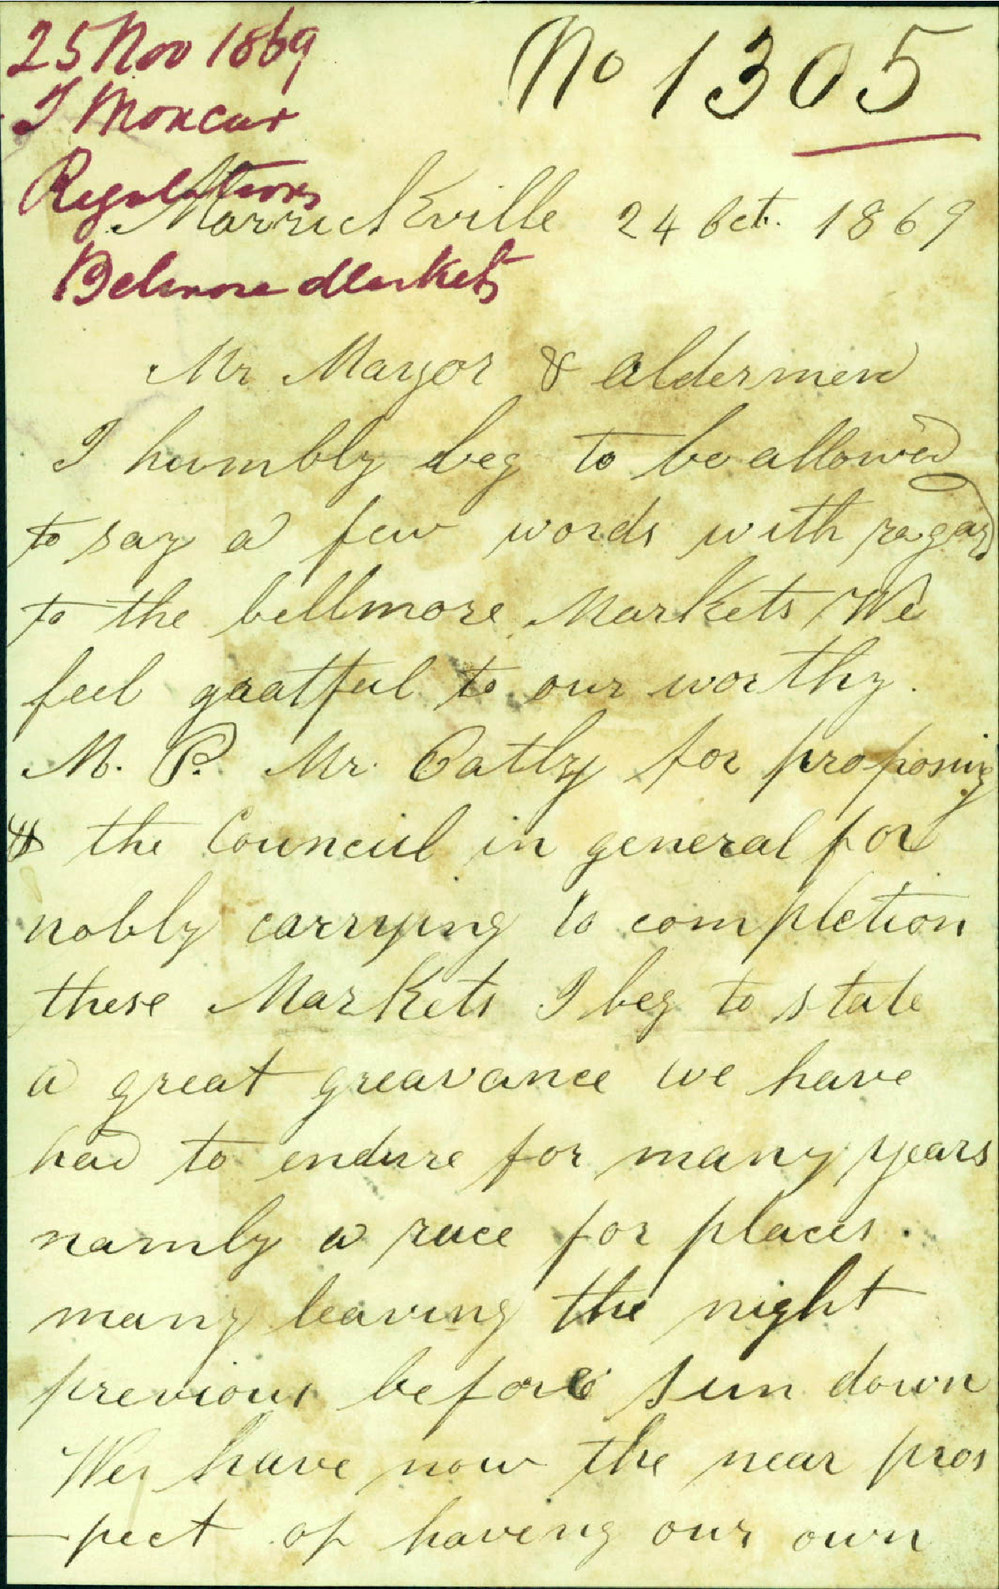 25 Nov 1869
No 1305
J Moncur
Regulations
Marrickville 24 Oct. 1869
Belmore Markets
Mr Mayor & aldermen
I humbly beg to be allowed
to say a few words with ragard
to the bellmore Markets We
feel gratful to our worthy.
M. P. Mr. Oatly for proposing
& the Council in general for
nobly carrying to completion
these Markets I beg to state
a great greavance we have
had to endure for many years
namly a race for places.
many leaving the night
previous before sun down
We have now the near pros
-pect of having our own